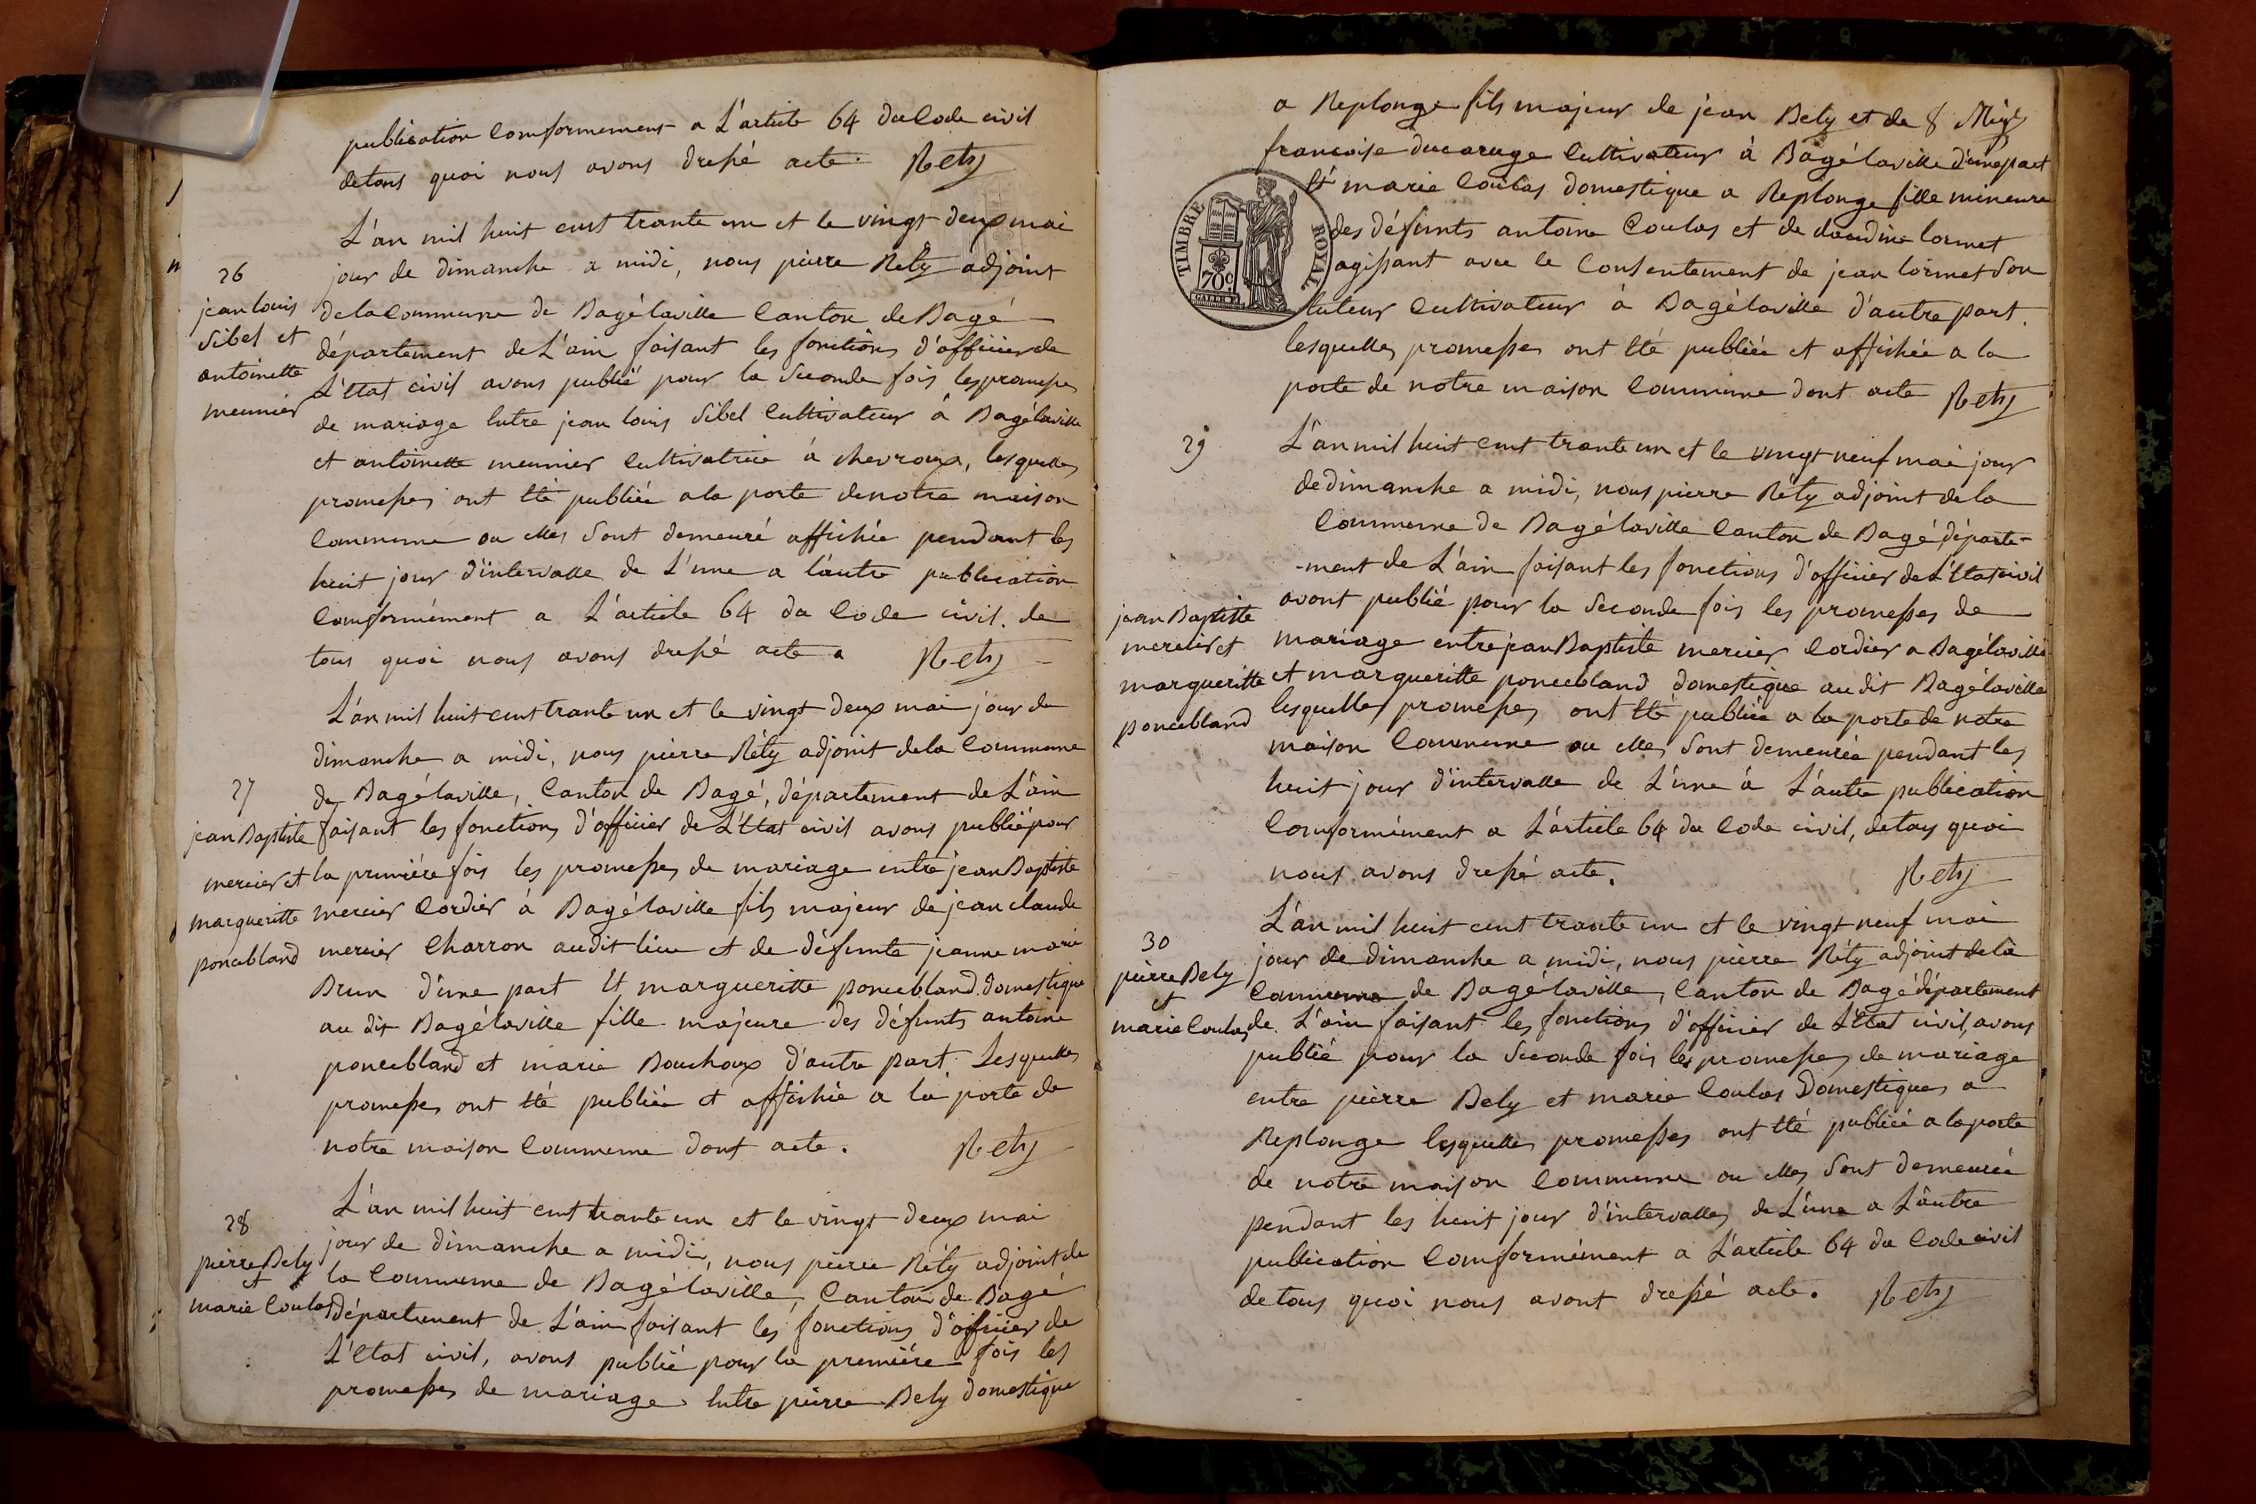 publication comformement a L'article 64 du Code civil
detous quoi nous avons dressé acte. Rety
L'an mil huit cent trante un et le vingt deux mai
26
jour de dimanche a midi, nous pierre Réty adjoint
jean louis
de la Commune de Bagélaville Canton de Bagé
Sibel et
département de L'ain faisant les fonctions d'officier de
antoinette
L'Etat civil avons publié pour la Seconde fois les promesses
meunier
de mariage Entre jean louis Sibel Cultivateur à Bagélaville
et antoinette meunier Cultivatrice à chevroux, lesquelles
promesses ont Eté publiée a la porte de notre maison
Commune ou elles Sont demeuré affichée pendant les
huit jour d'intervalle de L'une a l'autre publication
Comformément a L'article 64 du Code civil. de
tous quoi nous avons dressé acte. Rety
L'an mil huit cent trante un et le vingt deux mai jour de
dimanche a midi, nous pierre Réty adjoint de la Commune
27
de Bagélaville, Canton de Bagé, département de L'ain
jean Baptiste
faisant les fonctions d'officier de L'Etat civil avons publié pour
mercier et
la première fois les promesses de mariage entre jean Baptiste
margueritte
mercier Cordier à Bagélaville fils majeur de jean claude
poncebland
mercier Charron audit lieu et de défunte jeanne marie
Brun d'une part Et margueritte poncebland domestique
au dit Bagélaville fille majeure des défunts antoine
poncebland et marie Bouchoux d'autre part. Lesquelles
promesses ont Eté publiée et affichée a la porte de
notre maison Commune dont acte. Rety
L'an mil huit cent trante un et le vingt deux mai
28
jour de dimanche a midi, nous pierre Réty adjoint de
pierre Bely
la Commune de Bagélaville, Canton de Bagé
et
marie Coulas
département de L'ain faisant les fonctions d'officier de
L'Etat civil, avons publié pour la première fois les
promesses de mariage Entre pierre Bely domestique
a Replonge fils majeur de jean Bely et de
francoise ducarage Cultivateur à Bagélaville d'une part
Et marie Coulas domestique a Replonge fille mineure
des défunts antoine Coulas et de claudine lormet
agissant avec le Consentement de jean lormet Son
tuteur Cultivateur à Bagélaville d'autre part.
TIMBRE ROYAL
70c
lesquelles promesses ont Eté publiée et affichée a la
porte de notre maison Commune dont acte Rety
29
L'an mil huit cent trante un et le vingt neuf mai jour
de dimanche a midi, nous pierre Réty adjoint de la
Commune de Bagélaville Canton de Bagé, départe-
-ment de L'ain faisant les fonctions d'officier de L'Etat civil
avont publié pour la Seconde fois les promesses de
jean Baptiste
mercier et
mariage entre jean Baptiste mercier Cordier a Bagélaville
margueritte
et margueritte poncebland domestique audit Bagélaville
poncebland
lesquelles promesses ont Eté publiée a la porte de notre
maison Commune ou elles Sont demeurée pendant les
huit jour d'intervalle de L'une à L'autre publication
Comformément a L'article 64 du Code civil, detous quoi
nous avons dressé acte. Rety
L'an mil huit cent trante un et le vingt neuf mai
30
jour de dimanche a midi, nous pierre Réty adjoint de la
pierre Bely
Commune de Bagélaville, Canton de Bagé département
et
marie Coulas
de L'ain faisant les fonctions d'officier de L'Etat civil, avons
publié pour la Seconde fois les promesses de mariage
entre pierre Bely et marie Coulas Domestiques a
Replonge lesquelles promesses ont Eté publiée a la porte
de notre maison Commune ou elles Sont demeurée
pendant les huit jour d'intervalles de L'une a L'autre
publication Comformément a L'article 64 du Code civil
detous quoi nous avont dressé acte. Rety